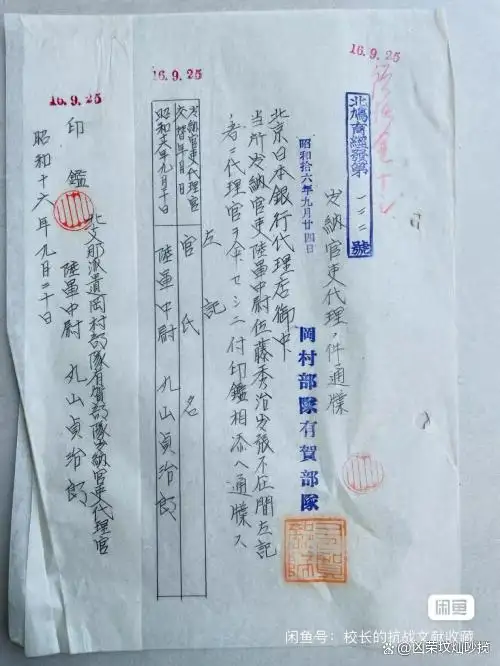 16.9.25
北鳩育經發第一三二號
昭和拾六年九月廿四日
岡村部隊有賀部隊
出納官吏代理ノ件通牒
北京日本銀行代理店御中
当所出納官吏陸軍中尉伍藤秀治出張不在間左記
者ニ代理官ヲ命セシニ付印鑑相添ヘ通牒ス
左記
出納官吏代理官
交替年月日
官氏名
昭和十六年九月二十日
陸軍中尉 丸山貞治郎
16.9.25
16.9.25
印鑑
北支那派遣岡村部隊有賀部隊出納官吏代理官
陸軍中尉 丸山貞治郎
昭和十六年九月二十日
闲鱼
闲鱼号：校长的抗战文献收藏